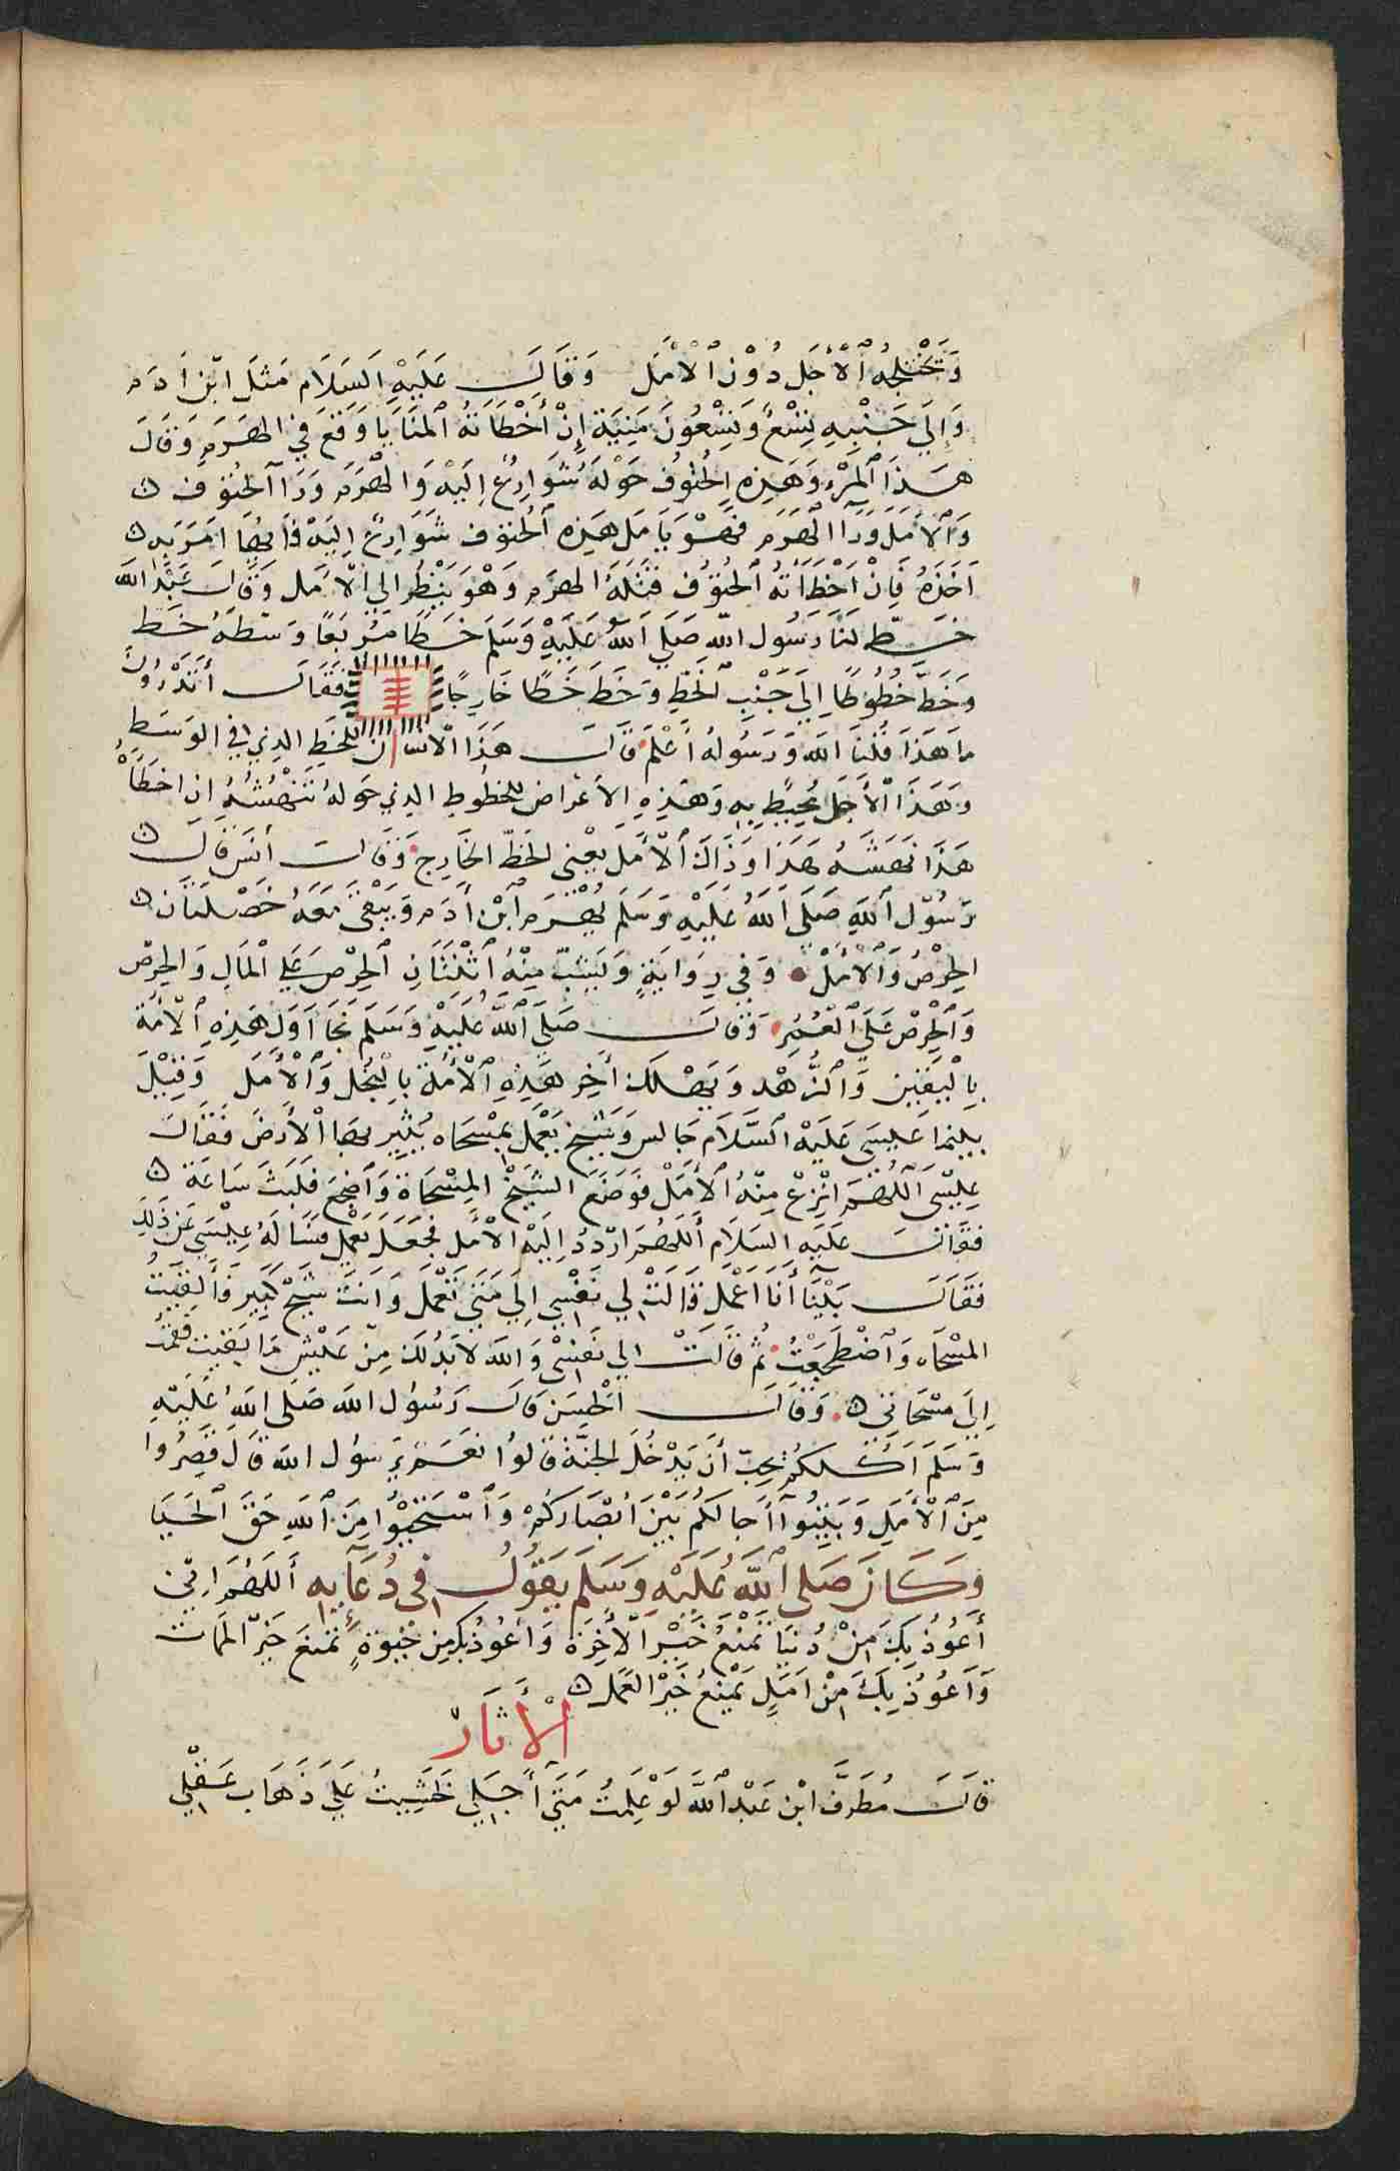 وَتَخْتَلِجُهُ ٱلْأَجَل دُوْن ٱلْأَمَل وَقَالَ عَلَيْهِ السَلَام مَثَل ابْن اَدَم
وَإِلَي جَنْبِهِ تِسْعٌ وَتِسْعُونَ مَنِيَة إِنْ أَخْطَاَتهُ ٱلْمَنَايَا وَقَعَ فِي الهَرَمِ وَقَالَ
هَذَا ٱلمَرْء وَهَذِهِ الحُتُوف حَوْلَهُ شَوَارِعٌ إِلَيْهِ وَالهَرَم وَرَآ الحُتوف
وَٱلأَمَلَ وَرَآ الهَرَم فَهُوَ يَامَل هَذِه ٱلحُتوف شَوَارِعٌ إِلَيْهِ فَأَيهَا امَرَ بِه
أَخَذَهُ فَإِنْ أَخْطَأَتهُ ٱلحُتوف قَتَلَهُ الهرَم وَهْوَ يَنْظُر الي الْأَمَل وَقَالَ عَبْد الله
خَطّ لنَا رَسُول الله صَلَي اللّهُ عَلَيْهِ وَسَلَم خَطًا مُرَبَعًا وَسَطهُ خَط
وَخَطَّ خُطُوطًا إِلَيَ جَنْبِ الخَطِ وَخَطَ خَطًا خَارِجًا فَقَالَ أَتَدْرُونَ
مَا هَذَا قُلنَا الله وَرَسُولهُ أَعْلَم قَالَ هَذَا الْانسَان للخَطِ الذِي في الوَسَط
وَهَذَا الْأَجَل مُحِيط بِهِ وَهَذِهِ الأَعْرَاض للخطُوط الذِي حَولهُ تَنْهَشُهُ ان اخطَأَهُ
هَذَا نَهَشَهُ هَذَا وَذَاكَ ٱلْأَمَل يَعْنِي الخَطّ الخَارِج وَقَالَ أنَس قَالَ
رَسُوْل ٱللَّهِ صَلَى اللَّهُ عَلَيْهِ وَسَلَم يَهْرَم ٱبْن أَدَم وَيَبْقَى مَعَهُ خَصْلَتَان
الحِرْصُ وَٱلْأَمَلْ وَفِي رِوَايَةٍ وَيَشِبّ مِنْهُ ٱثْنَتَانِ ٱلحِرْص عَلَي ٱلْمَالِ وَالحِرْص
وَٱلْحِرْص عَلَي ٱلْعُمُرِ وَقَالَ صَلَي ٱللَّهُ عَلَيْهِ وَسَلَم نَجَا أَوَل هَذِهِ ٱلْأُمَة
بِالْيَقِيْن وَٱلزُّهْد وَيَهْلَك أَخِر هَذِهِ ٱلْأُمَة بِالْبُخْل وَٱلْأَمَل وَقِيْلَ
بينما عيسَى عَلَيْهِ السَّلَام جَالس وَشَيْخ يَعْمَل بمسْحَاه يُثِير بهَا الْأَرض فَقَالَ
عِيْسَى ٱللَّهُمَّ انْزِعْ مِنْهُ ٱلْأَمَلْ فَوَضَعَ الشَيْخْ المِسْحَاة وَاضْجَعَ فَلَبَثَ سَاعَة
فَقَالَ عَلَيْهِ السَلَام أَللَهُمَ ارْدُدْ إِلَيْهِ الْأَمَل فَجَعَلَ يَعْمَل فَسَالَهُ عِيْسَي عَن ذَلِكَ
فَقَالَ بَيْنَآ أَنَا اَعْمَل قَالَتْ لِي نَفْسِي إِلَي مَتَي تَعْمَل وَأَنتَ شَيْخ كَبِير فَأَلقَيتُ
المسْحَاه وَٱضْطَجَعْتُ ثُم قَالَتْ لي نَفْسِي وَاللّهِ لَا بُدَ لَك مِنْ عَيْشٍ مَا بَقِيت فَقمتُ
إِلَيَ مسْحَاتي وَقَالَ الحَسَن قَالَ رَسُول الله صَلَى اللَهُ عَلَيْهِ
وَسَلَمَ أَكُلكُمْ يُحِبّ أَن يَدْخُلَ الجَنَّة قَالوُا نعَم يَرَسوُل الله قَالَ قَصِرُوا
مِنَ ٱلْأَمَلِ وَبَيِّنُوا أَجَالَكُمْ بَيْنَ أَبْصَارَكُمْ وَٱسْتَحْيُوا مِنَ ٱللَهِ حَقَ ٱلحَيَا
وَكَانَ صَلى اللَّهُ عَلَيْهِ وَسَلَم يَقُولُ في دُعَآيِهِ أَللَّهُمَ إِنِي
أَعُوُذ بِكَ مِنْ دُنْيَا تَمْنَعُ خَيْر الْأَخِرَة وَأَعُوُذُ بِكَ مِن حَيوةٍ تَمنَعَ خَيْرَ المَمَات
وَأَعُوُذ بِكَ مِنْ أَمَلٍ يَمْنَعُ خَيْرَ العَمَل
الْأَثَار
قَالَ مُطَرَّف ابْن عَبْد اللَّه لَوْ عَلِمْتُ مَتَي أَجَلِي لَخَشِيتُ عَلَيَ ذَهَاب عَقْلِي